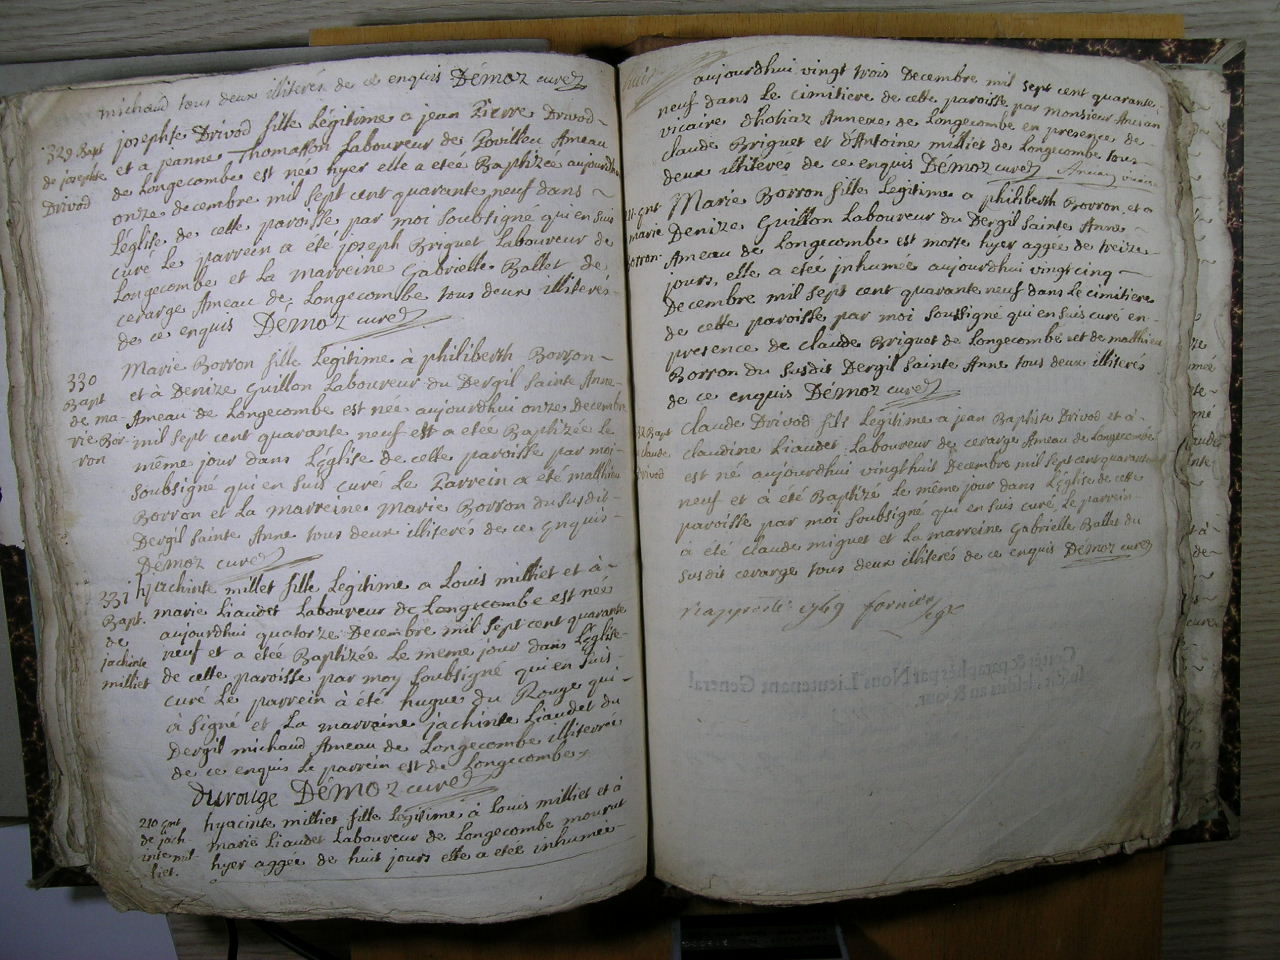 michaud tous deux illiterés de ce enquis Démoz curez
329 Bapt
de josephte
Drivod
josephte Drivod fille Légitime a jean Pierre Drivod
et a jeanne Thomasson Laboureur de Povilleu Ameau
de Longecombe est neé hyer elle a eteé Baptizeé aujourdhu
onze decembre mil sept cent quarante neuf dans
Léglise de cette paroisse par moi soubsigné qui en suis
curé Le parrein a été joseph Briguet Laboureur de
Longecombe et La marreine Gabrielle Ballet de
cerarge Ameau de Longecombe tous deux illiteres
de ce enquis Démoz curez
330
Bapt
de ma-
rie Bor-
ron
Marie Borron fille Légitime à philiberth Borron
et à Denize Guillon Laboureur du Dergil Sainte Anne
Ameau de Longecombe est neé aujourdhui onze Decembre
mil sept cent quarante neuf est a eteé Baptizeé Le
même jour dans Léglise de cette paroisse par moi
soubsigné qui en suis curé Le Parrein a été matthieu
Borron et La marreine Marie Borron du susdit
Dergil Sainte Anne tous deux illiterés de ce Enquis
Démoz curez
331
Bapt.
de
jachinte
milliet
hjachinte millet fille Légitime a Louis milliet et à
marie Liaudet Laboureur de Longecombe est neé
aujourdhui quatorze Decembre mil sept cent quarante
neuf et a eteé Baptizeé Le meme jour dans Léglise
de cette paroisse par moy soubsigné qui en suis
curé Le parrein à été hugue du Rouge qui
à signé et La marreine jachinte Liaudet du
Dergil michaud Ameau de Longecombe illiterré
de ce enquis Le parrein est de Longecombe
durouge Démoz curez
210 Ent
de jach
inte mil-
liet.
hyacinte milliet fille Légitime à Louis milliet et à
marie Liaudet Laboureur de Longecombe mourut
hyer aggeé de huit jours elle a eteé inhumeé
aujourdhui vingt trois Decembre mil sept cent quarante
neuf dans Le cimitiere de cette paroisse par Monsieur
vicaire dhotiaz Annexe de Longecombe en presence de
claude Briguet et d'Antoine milliet de Longecombe tous
deux illiterés de ce enquis Démoz curez
Ent
marie
Borron
Marie Borron fille Legitime a philiberth Borron et a
Denize Guillon Laboureur du Dergil Sainte Anne
Ameau de Longecombe est morte hyer aggeé de treize
jours, elle a eteé jnhumeé aujourdhui vingt cinq
Decembre mil sept cent quarante neuf dans Le cimitiere
de cette paroisse par moi soussigné qui en suis curé en
presence de claude Briguet de Longecombe et de mathieu
Borron du susdit Dergil Sainte Anne tous deux illiterés
de ce enquis Démoz curez
Bapt
claude
Drivod
claude Drivod fils Légitime a jean Baptiste Drivod et à
claudine Liaudet Laboureur de cerarge Ameau de Longecombe
est né aujourdhui vingthuit Decembre mil sept cent quarante
neuf et à été Baptizé Le même jour dans Léglise de cette
paroisse par moi soubsigné qui en suis curé, Le parrein
à été claude miguet et La marreine Gabrielle Ballet du
susdit cerarge tous deux illiterés de ce enquis Démoz curez
1749 fornier